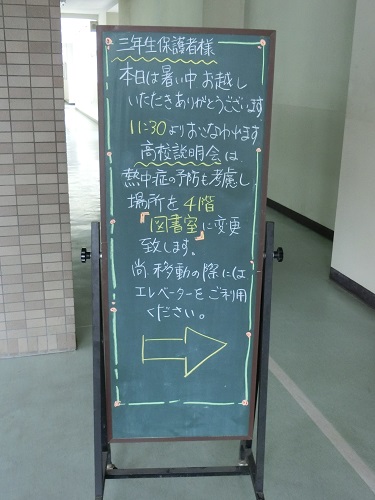 三年生保護者様
本日は暑い中お越し
いただきありがとうございます
11:30よりおこなわれます
高校説明会は、
熱中症の予防も考慮し、
場所を4階
『図書室』に変更
致します。
尚、移動の際には
エレベーターをご利用
ください。